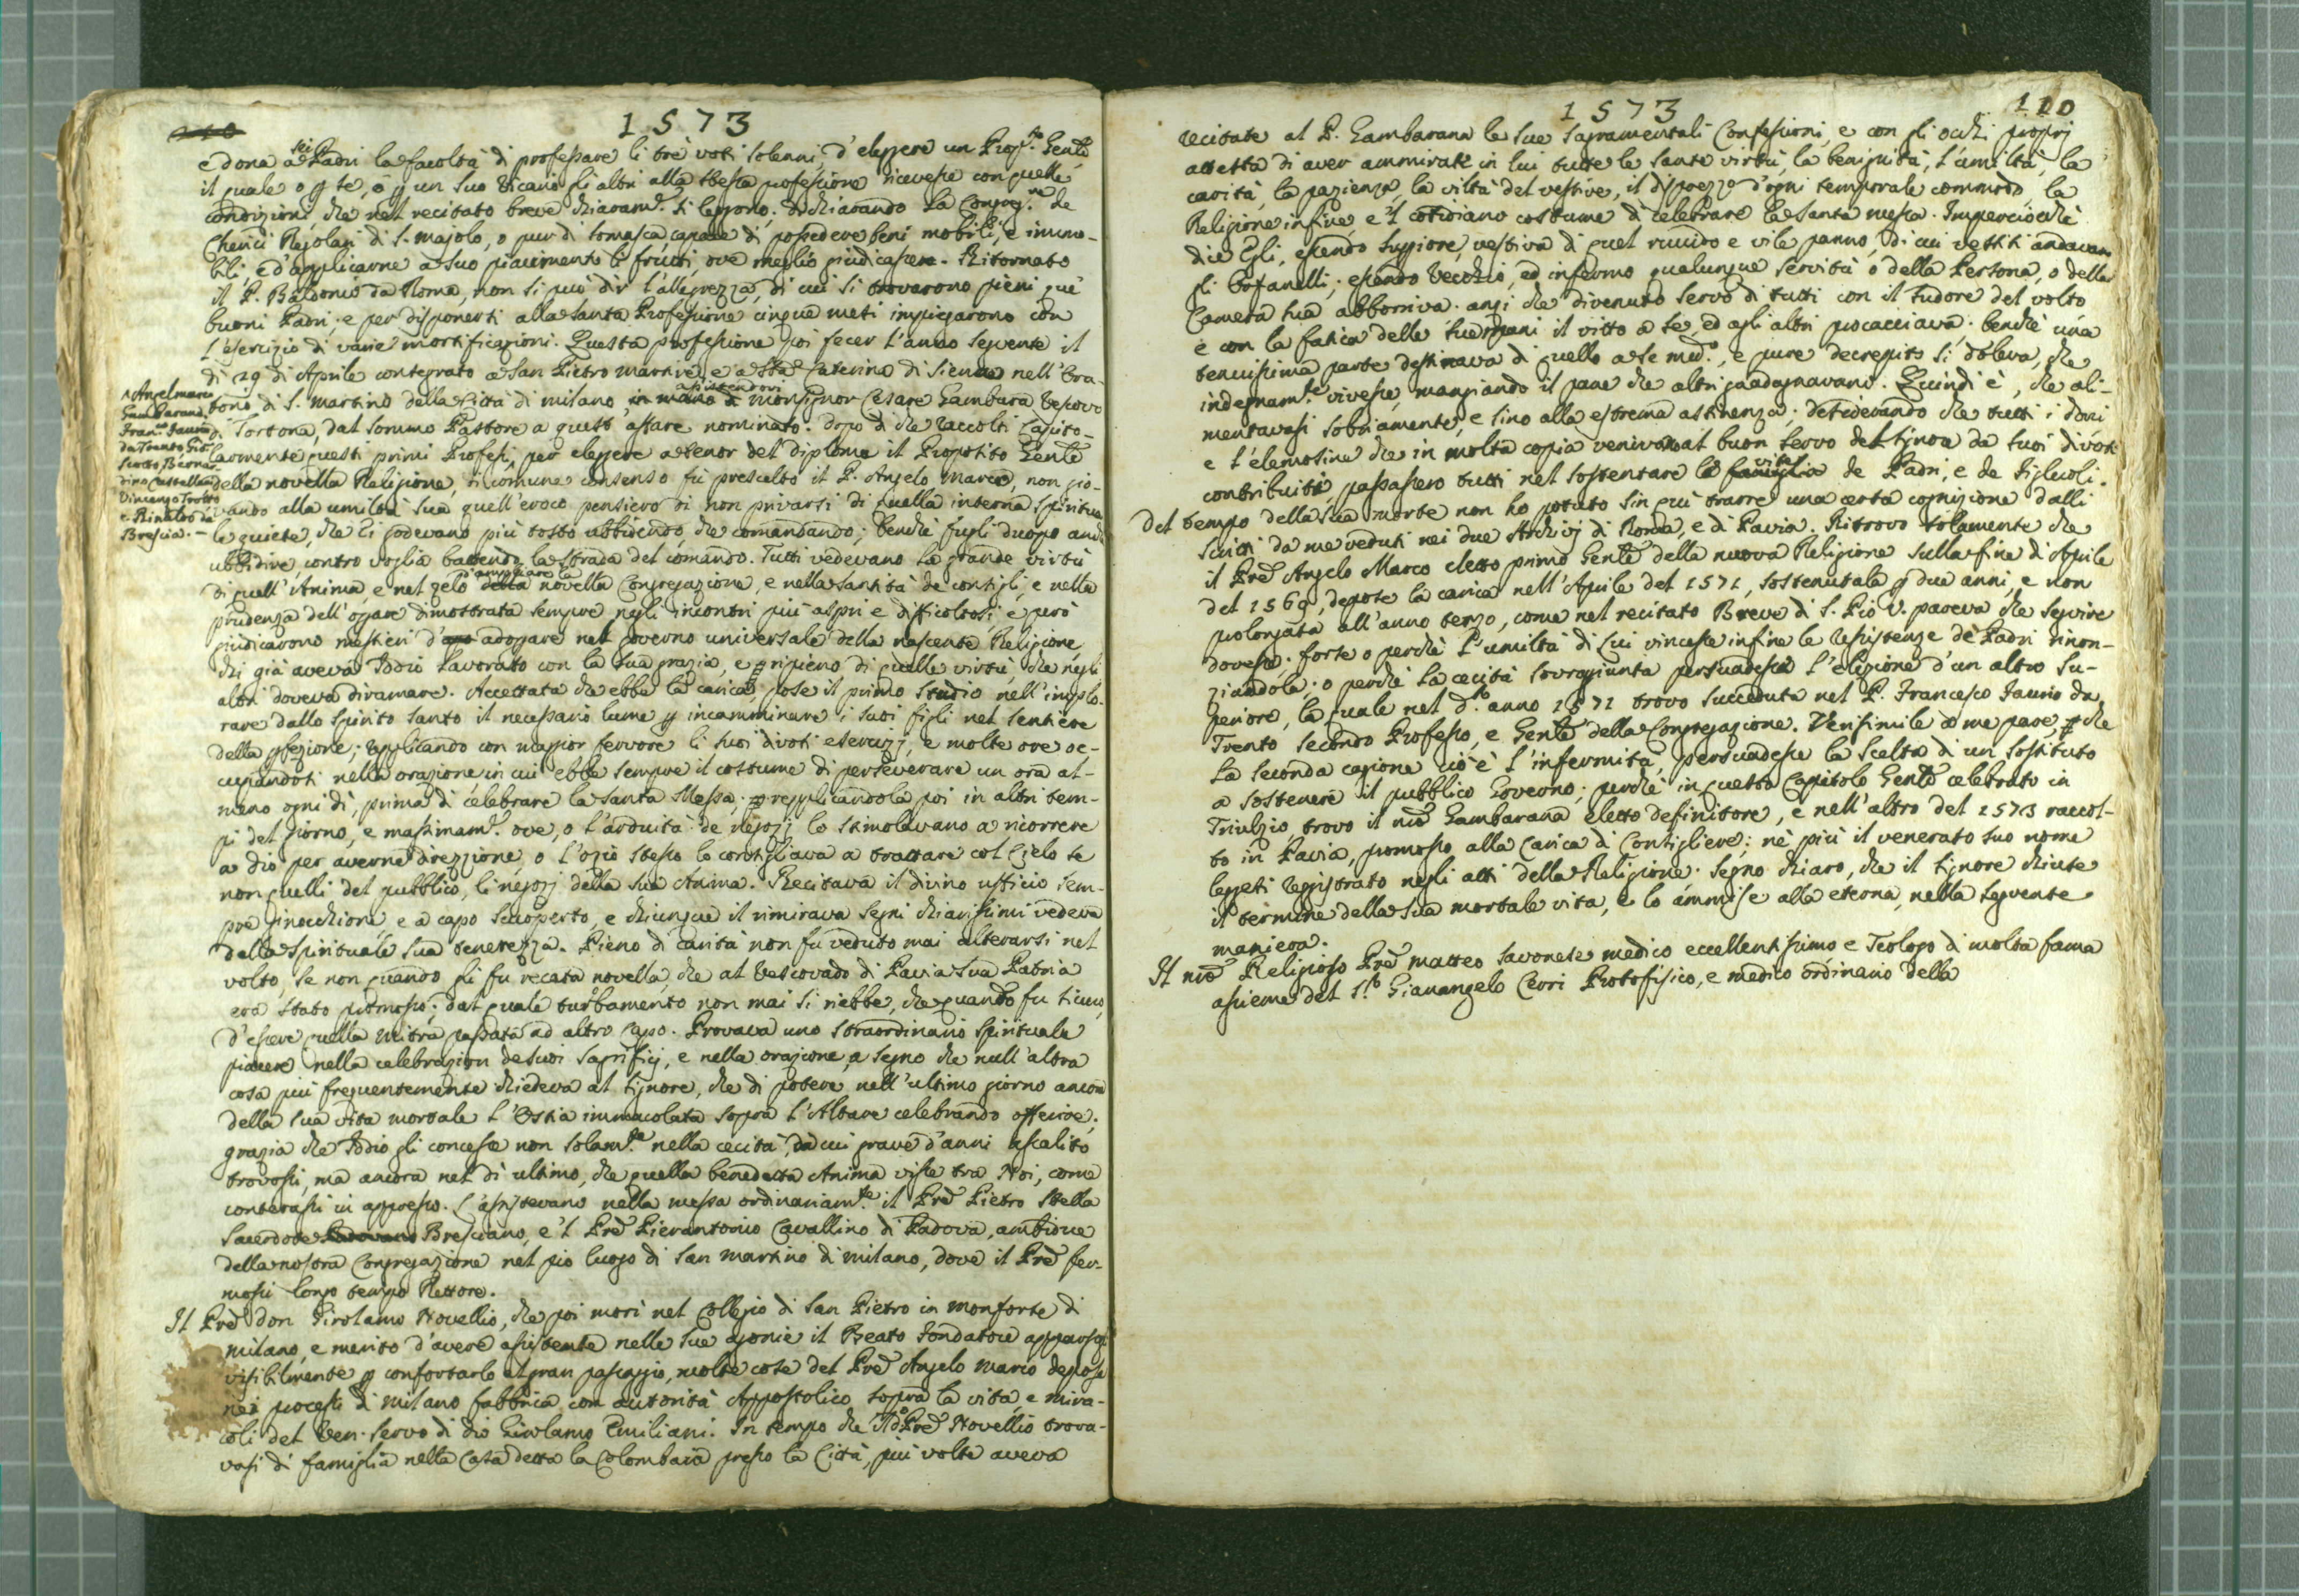 1573
e dona a sei Padri la facoltà di professare li trè voti solenni, d'eleggere un Prop.to Genle
il quale o p se, ò p un suo Vicario gli altri alla stessa professione ricevesse con quelle
condizioni che nel recitato breve chiaram.e si leggono: dichiarando la Congreg.ne de
Cherici Regolari di S. Majolo, o pur di Somasca capace di possedere beni mobili, e immo-
bili, e d'applicarne a suo piacimento li frutti, ove meglio giudicasse. Ritornato
il P. Baldonio da Roma, non si può dir l'allegrezza, di cui si trovarono pieni que'
buoni Padri; e per disponersi alla santa Professione cinque mesi impiegarono con
l'esercizio di varie mortificazioni. Questa professione poi fecer l'anno seguente il
dì 29 di Aprile consegrato a San Pietro martire, e a Sta Caterina di Siena nell'Ora-
torio di S. Martino della Città di Milano, in mano di assistendovi Monsignor Cesare Gambara Vescovo
di Tortona, dal sommo Pastore a quest'affare nominato. Dopo di che raccolti Capito-
larmente questi primi Professi per eleggere a tenor del diploma il Proposito Genle
della novella Religione, di comune consenso fù prescelto il P. Angelo Marco, non gio-
vando alla umiltà sua quell'eroco pensiero di non privarsi di quella interna spiritua-
le quiete, che si godevano più tosto ubbidendo, che comandando; benchè fugli duopo anche
ubbidire contro voglia battendo la strada del comando. Tutti vedevano la grande virtù
di quell'Anima e nel zelo della d'ampliare la novella Congregazione, e nella santità de consigli, e nella
prudenza dell'oprare dimostrata sempre negli incontri più aspri e difficoltosi, e però
giudicarono mestieri d'adoprare nel governo universale della nascente Religione
chi già aveva Iddio lavorato con la sua grazia, e ripieno di quelle virtù, che negli
altri doveva diramare. Accettata che ebbe la carica, pose il primo studio nell'implo-
rare dallo Spirito Santo il necessario lume p incamminare i suoi figli nel sentiere
della pfezione; replicando con maggior fervore li suoi divoti esercizj, e molte ore oc-
cupandosi nella orazione in cui ebbe sempre il costume di perseverare un ora al-
meno ogni dì, prima di celebrare la Santa Messa; replicandola poi in altri tem-
pi del giorno, e massimam.e ove, o l'arduità de negozj lo stimolavano a ricorrere
a Dio per averne direzzione, o l'ozio stesso lo consigliava a trattare col Cielo se
non quelli del pubblico, li negozj della sua Anima. Recitava il divino ufficio sem-
pre ginocchione, e a capo scoperto, e chiunque il rimirava segni chiarissimi vedeva
della spirituale sua tenerezza. Pieno di carità non fu veduto mai alterarsi nel
volto, se non quando gli fu recata novella, che al Vescovado di Pavia sua Patria
era stato promosso: dal quale turbamento non mai si riebbe, che quando fu sicuro,
d'essere quella mitra passata ad altro capo. Provava uno straordinario spirituale
piacere nella celebrazion de suoi sagrificj, e nella orazione, a segno che null'altra
cosa più frequentemente chiedeva al Signore, che di potere nell'ultimo giorno ancora
della sua vita mortale l'Ostia immacolata sopra l'Altare celebrando offerire;
grazia che Iddio gli concesse non solam.te nella cecità, da cui grave d'anni assalito
trovossi, ma ancora nel dì ultimo, che quella benedetta Anima visse tra Noi, come
conterassi in appresso. L'assistevano nella messa ordinariam.te il Pre Pietro Stella
Sacerdote Padovano Bresciano, e 'l Pre Pierantonio Cavallino di Padova, ambidue
della nostra Congregazione nel pio luogo di San Martino di Milano, dove il Pre fer-
mossi longo tempo Rettore.
Il Pre don Girolamo Novellio, che poi morì nel Collegio di San Pietro in Monforte di
Milano, e meritò d'avere assistente nelle sue agonie il Beato Fondatore apparsogli
visibilmente p confortarlo al gran passaggio, molte cose del Pre Angelo Marco depose
nei processi di Milano fabbrica con autorità Appostolica sopra la vita, e mira-
coli del Ven. servo di Dio Girolamo Emiliani. In tempo che 'l do Pre Novellio trova-
vasi di famiglia nella Casa detta la Colombaia presso la Città, più volte aveva
Angelmarco
Gambarana,
Fran.co Faurio
da Trento, Gio:
Scotto, Bernar-
dino Castellani
Vincenzo Trotto
e Rinaldo da
Brescia.
1573
110
recitate al P. Gambarana le sue sagramentali Confessioni, e con gli occhi proprj
attesta di aver ammirate in lui tutte le sante virtù, la benignità, l'umiltà, la
carità, la pazienza, la viltà del vestire, il disprezzo d'ogni temporale commodo, la
Religione infine, e 'l cotidiano costume di celebrare la santa messa. Imperciocchè
dic'Egli, essendo Suppiore, vestiva di quel ruvido e vile panno, di cui vestiti andavan
gli Orfanelli; essendo vecchio, ed infermo qualunque servitù ò della Persona, o della
Camera sua abborriva. anzi che divenuto servo di tutti con il sudore del volto
e con la fatica delle sue mani il vitto a se, ed agli altri procacciava. benchè una
tenuissima parte destinava di quello a se med.o, e pure decrepito si doleva, che
indegnam.te vivesse, mangiando il pane che altri guadagnavano. Quindi è, che ali-
mentavasi sobriamente, e sino alla estrema astinenza; desiderando che tutti i doni
e l'elemosine che in molta copia venivano al buon servo del Signor da suoi divoti
contribuiti, passassero tutti nel sostentare la famiglia vita de Padri, e de Figliuoli.
Del tempo della sua morte non ho potuto sin quì trarre una certa cognizione dalli
Scritti da me veduti nei due Archivj di Roma, e di Pavia. Ritrovo solamente che
il Pre Angelo Marco eletto primo Genle della nuova Religione sulla fine di Aprile
del 1569, depose la carica nell'Aprile del 1571, sostenutala p due anni, e non
prolongata all'anno terzo, come nel recitato Breve di S. Pio V. pareva che seguire
dovesse; forse o perchè l'umiltà di Lui vincesse infine le resistenze de Padri rinon-
ziandola; o perchè la cecità sovragiunta persuadesse l'elezione d'un altro Su-
periore, la quale nel d.to anno 1571 trovo succeduta nel P. Francesco Faurio da
Trento secondo Professo, e Genle della Congregazione. Verisimile a me pare, che
la seconda cagione cio è l'infermità, persuadesse la scelta di un sostituto
a sostenere il pubblico Governo; perchè in questo Capitolo Genle celebrato in
Triulzio, trovo il nro Gambarana eletto definitore, e nell'altro del 1573 raccol-
to in Pavia, promosso alla carica di Consigliere; nè più il venerato suo nome
leggesi registrato negli atti della Religione. Segno chiaro, che il Signore chiuse
il termine della sua mortale vita, e lo ammise alla eterna, nella seguente
maniera.
Il nro Religioso Pre Matteo Savonese medico eccellentissimo e Teologo di molta fama
assieme del S.to Gianangelo Cerri Protofisico, e medico ordinario della